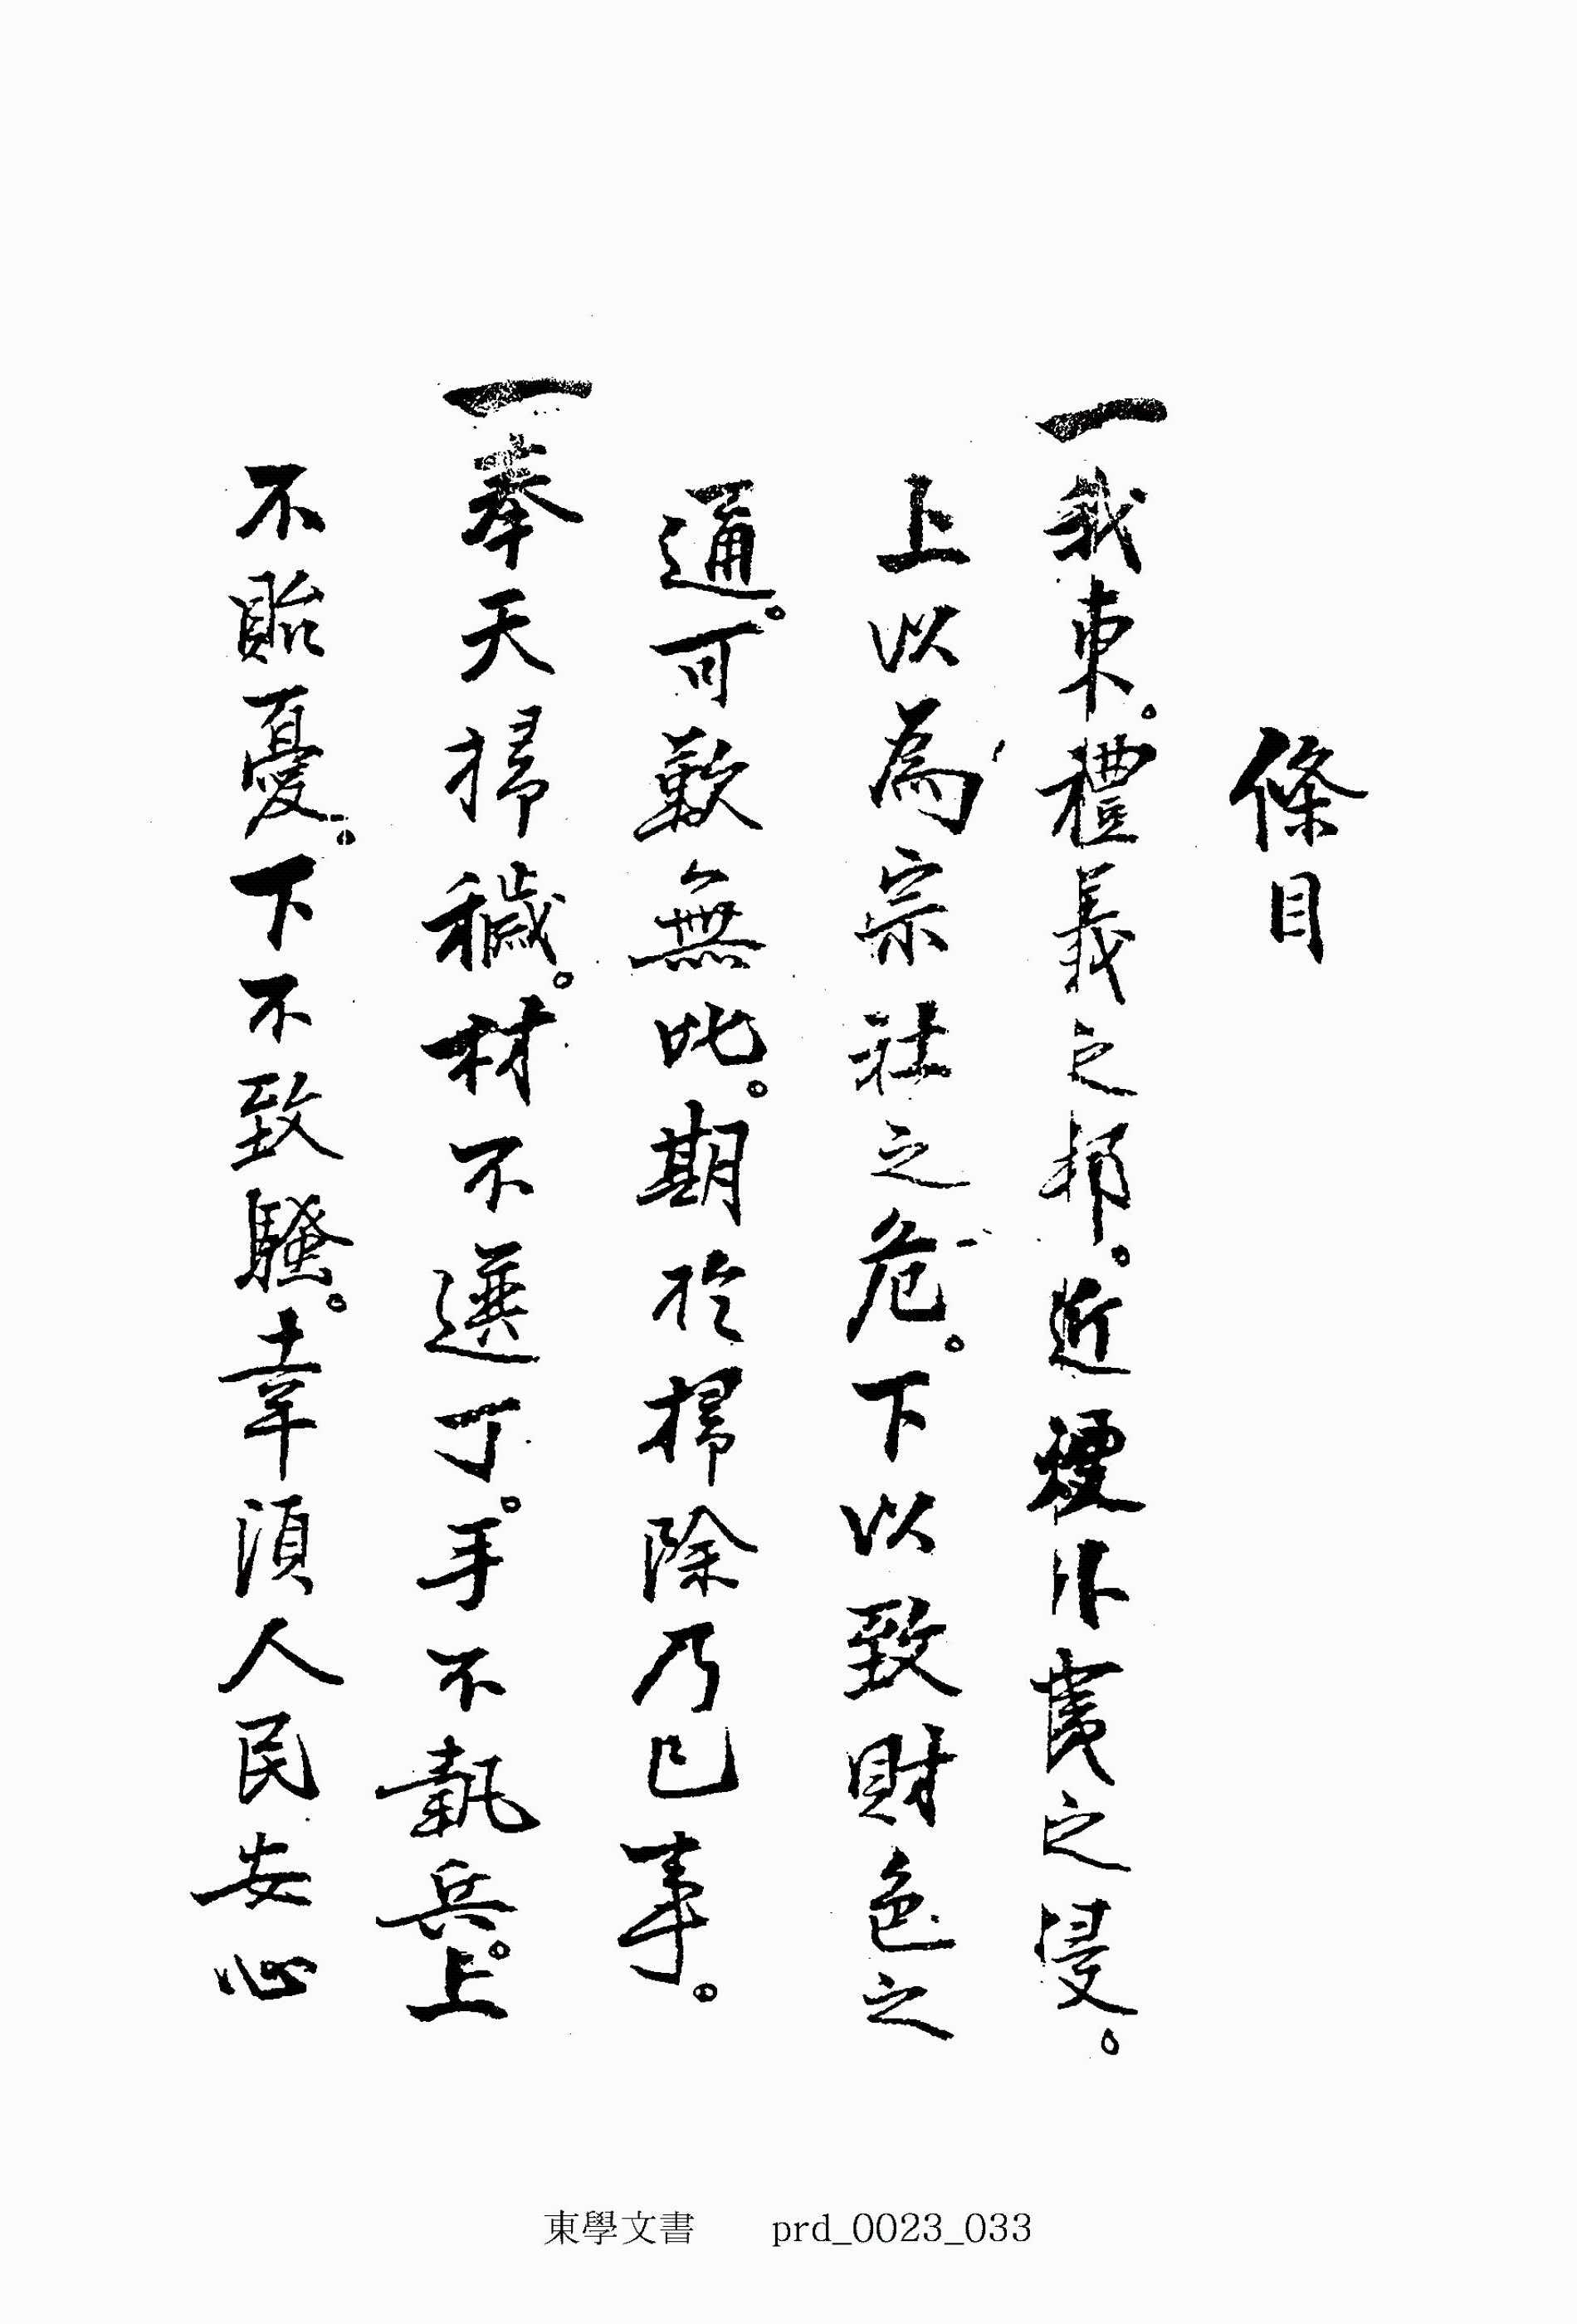 條目
一我東。禮義之邦。近外之侵。
上以為宗社之危。下以致財色之
通。可歎無比。期於掃除乃已事。
一奉天掃穢。材不選丁。手不執兵。上
不貽憂。下不致騷。幸須人民安心
東學文書 prd_0023_033